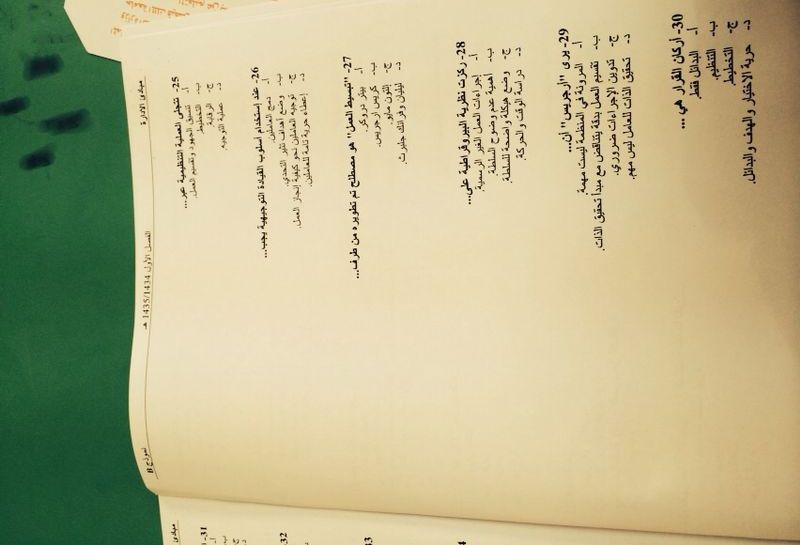 مبادئ الادارة
الفصل الأول 1435/1434 هـ
نموذج B
25- تتجلى العملية التنظيمية عبر...
أ- تنسيق الجهود وتقسيم العمل.
ب- التخطيط.
ج- الرقابة.
د- عملية التوجيه.
26- عند إستخدام أسلوب القيادة التوجيهية يجب...
أ- دمج العاملين.
ب- وضع أهداف تثير التحدي.
ج- توجيه العاملين نحو كيفية إنجاز العمل.
د- إعطاء حرية تامة للعاملين.
27- "تبسيط العمل" هو مصطلح تم تطويره من طرف...
أ- بيتر دروكر.
ب- كريس ارجريس.
ج- إلتون مايو.
د- ليليان وفرانك جلبرث.
28- ركزت نظرية البيروقراطية على...
أ- إجراءات العمل الغير الرسمية.
ب- أهمية عدم وضوح السلطة.
ج- وضع هيكلة واضحة للسلطة.
د- دراسة الوقت والحركة.
29- يرى "ارجريس" أن...
أ- المرونة في المنظمة ليست مهمة.
ب- تقسيم العمل بدقة يتناقض مع مبدأ تحقيق الذات.
ج- تدوين الإجراءات ضروري.
د- تحقيق الذات للعامل ليس مهم.
30- أركان القرار هي ...
أ- البدائل فقط.
ب- التنظيم.
ج- التخطيط.
د- حرية الاختيار والهدف والبدائل.
مبادئ
31-
أ-
ب-
ج-
د-
32
33